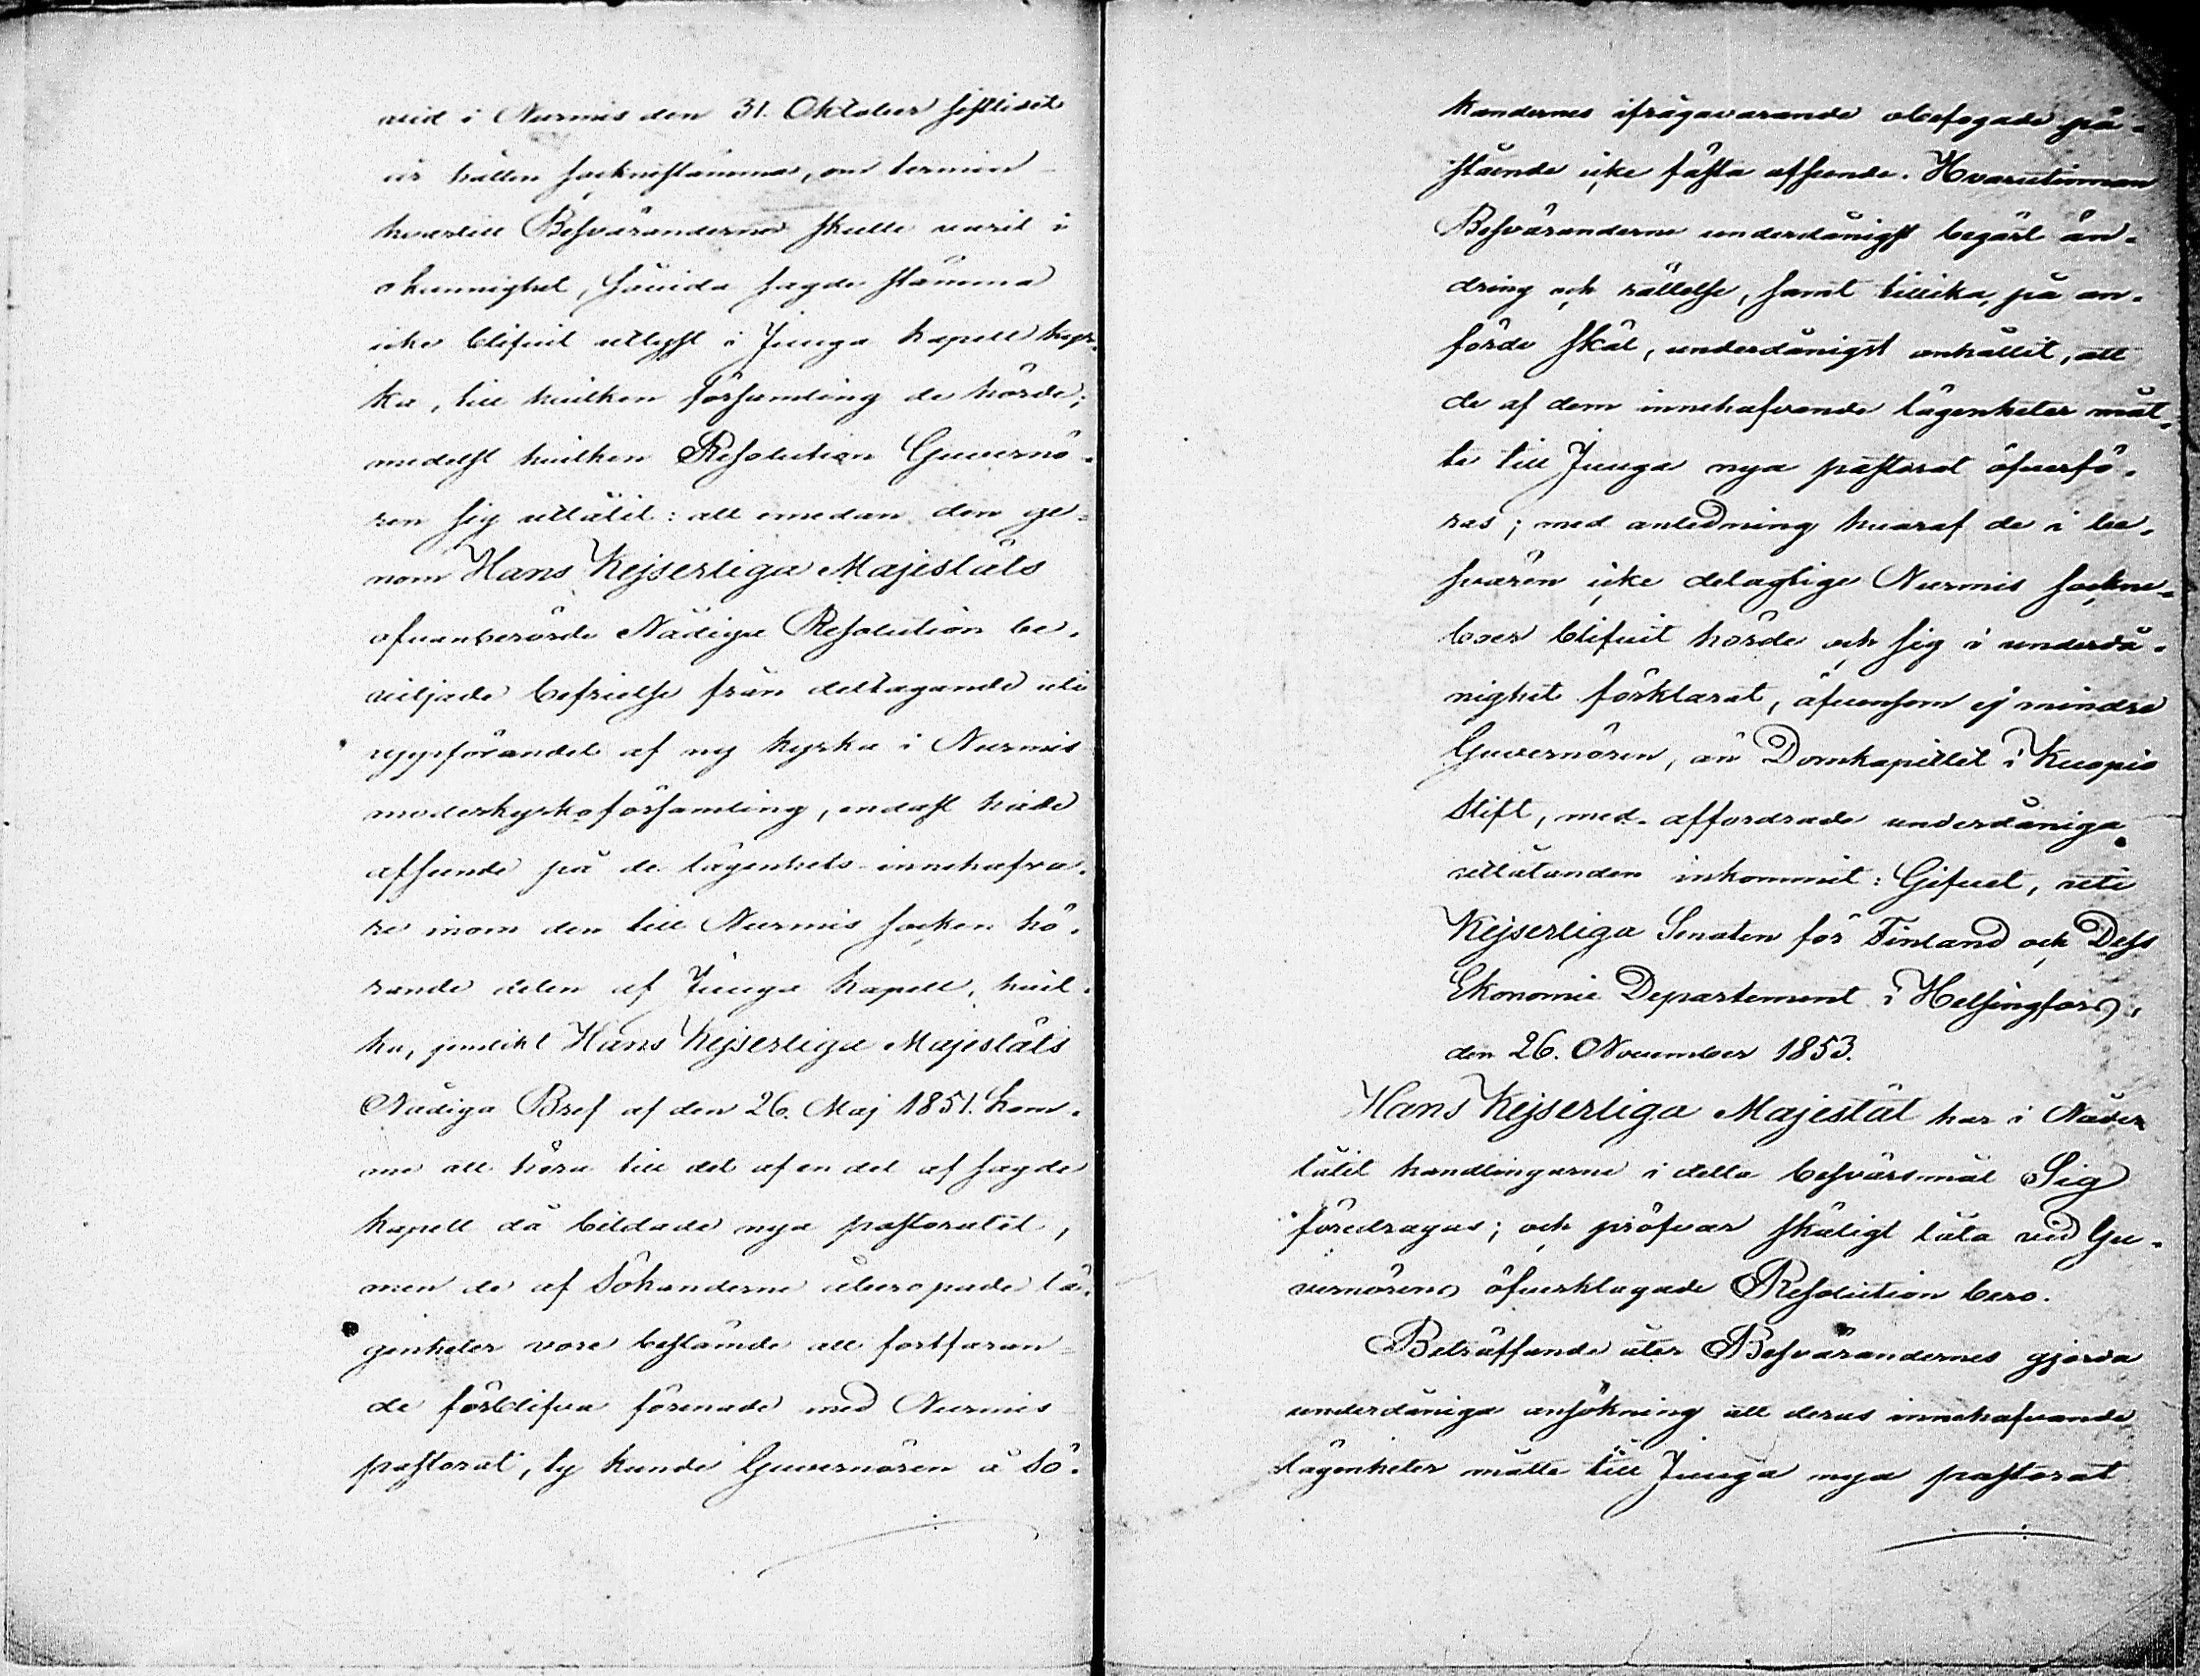 vid i Nurmis den 31. Oktober sistlidit
år hållen socknestämma, om termin
hvartill Besvärandernes skulle varit i
okunnighet, såvida sagde stämma
icke blifvit utlyst i Juuga kapell kyr-
ka, till hvilken församling de hörde;
medelst hvilken Resolution Guvernö-
ren sig utlåtit: att emedan den ge-
nom Hans Kejserliga Majestäts
ofvanberörde Nådiga Resolution be-
viljade befrielse från deltagande uti
uppförandet af ny kyrka i Nurmis
moderkyrkoförsamling, endast hade
afseende på de lägenhets innehafva-
re inom den till Nurmis socken hö-
rande delen af Juuga kapell, hvil-
ka, jemlikt Hans Kejserliga Majestäts
Nådiga Bref af den 26. Maj 1851. kom-
me att höra till det af en del af sagde
kapell då bildade nya pastoratet,
men de af Sökanderne åberopade lä-
genheter vore bestämde att fortfaran-
de förblifva förenade med Nurmis
pastorat, ty kunde Guvernören å Sö-
kandernes ifrågavarande obefogade på-
stående icke fästa afseende. Hvarutinnan
Besväranderne underdånigst begärt än-
dring och rättelse, samt tillika, på an-
förde skäl, underdånigst anhållit, att
de af dem innehafvande lägenheter måt-
te till Juuga nya pastorat öfverfö-
ras; med anledning hvaraf de i be-
svären icke delagtige Nurmis sockne-
boer blifvit hörde och sig i underdå-
nighet förklarat, äfvensom ej mindre
Guvernören, än Domkapitlet i Kuopio
Stift, med affordrade underdåniga
utlåtanden inkommit: Gifvet, uti
Kejserliga Senaten för Finland och Dess
Ekonomie Departement i Helsingfors,
den 26. November 1853.
Hans Kejserliga Majestät har i Nåder
låtit handlingarne i detta besvärsmål Sig
föredragas; och pröfvar skäligt låta vid Gu-
vernörens öfverklagade Resolution bero.
Beträffande åter Besvärandernes gjorda
underdåniga ansökning att deras innehafvande
lägenheter måtte till Juuga nya pastorat